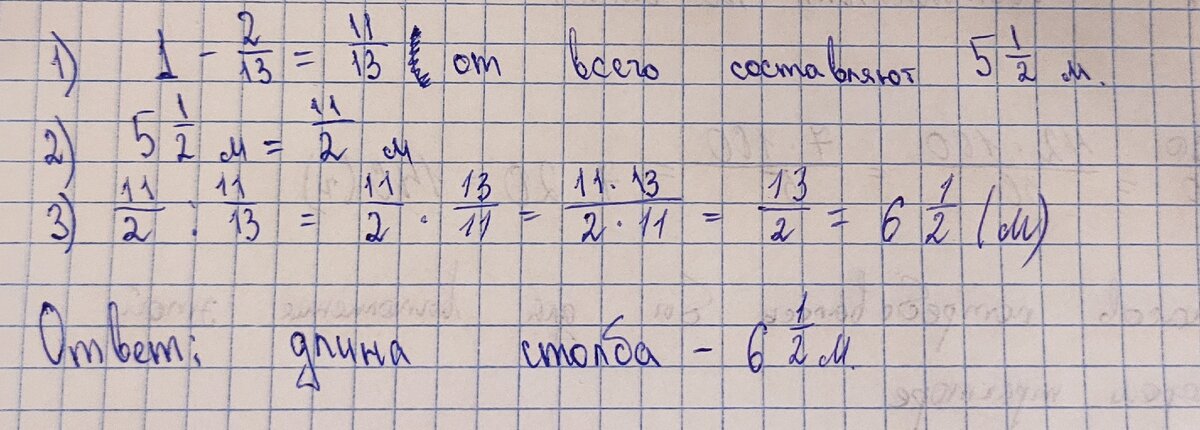 1) 1 - 2/13 = 11/13 от всего составляют 5 1/2 м.
2) 5 1/2 м = 11/2 м
3) 11/2 : 11/13 = 11/2 · 13/11 = 11·13/2·11 = 13/2 = 6 1/2 (м)
Ответ: длина столба - 6 1/2 м.